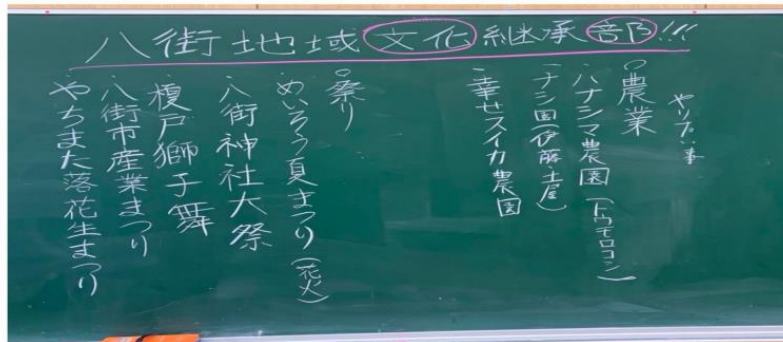 八街地域文化継承部!!!
やりたい事
○農業
・ハナシマ農園(トウモロコシ)
・ナシ園(伊藤・土屋)
・幸せスイカ農園
○祭り
・めいろう夏まつり(花火)
・八街神社大祭
・榎戸獅子舞
・八街市産業まつり
・やちまた落花生まつり